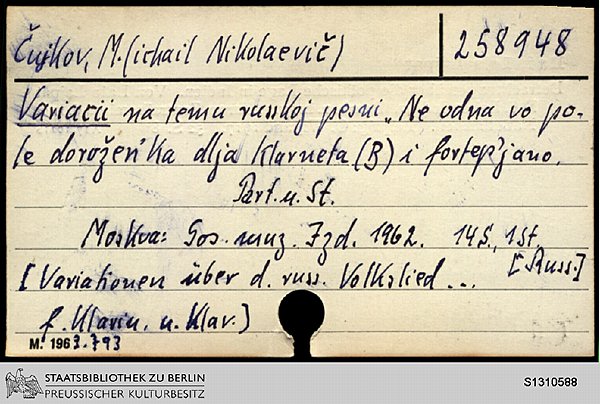 Čujkov, M.(ichail Nikolaevič)
258948
Variacii na temu russkoj pesni „Ne odna vo po-
le dorožen'ka dlja klarneta (B) i fortep'jano.
Part. u. St.
Moskva: Gos. muz. Izd. 1962. 14 S., 1 St.
[Russ.]
[Variationen über d. russ. Volkslied ...
f. Klarin. u. Klav.]
M. 1963.793
STAATSBIBLIOTHEK ZU BERLIN
PREUSSISCHER KULTURBESITZ
S1310588